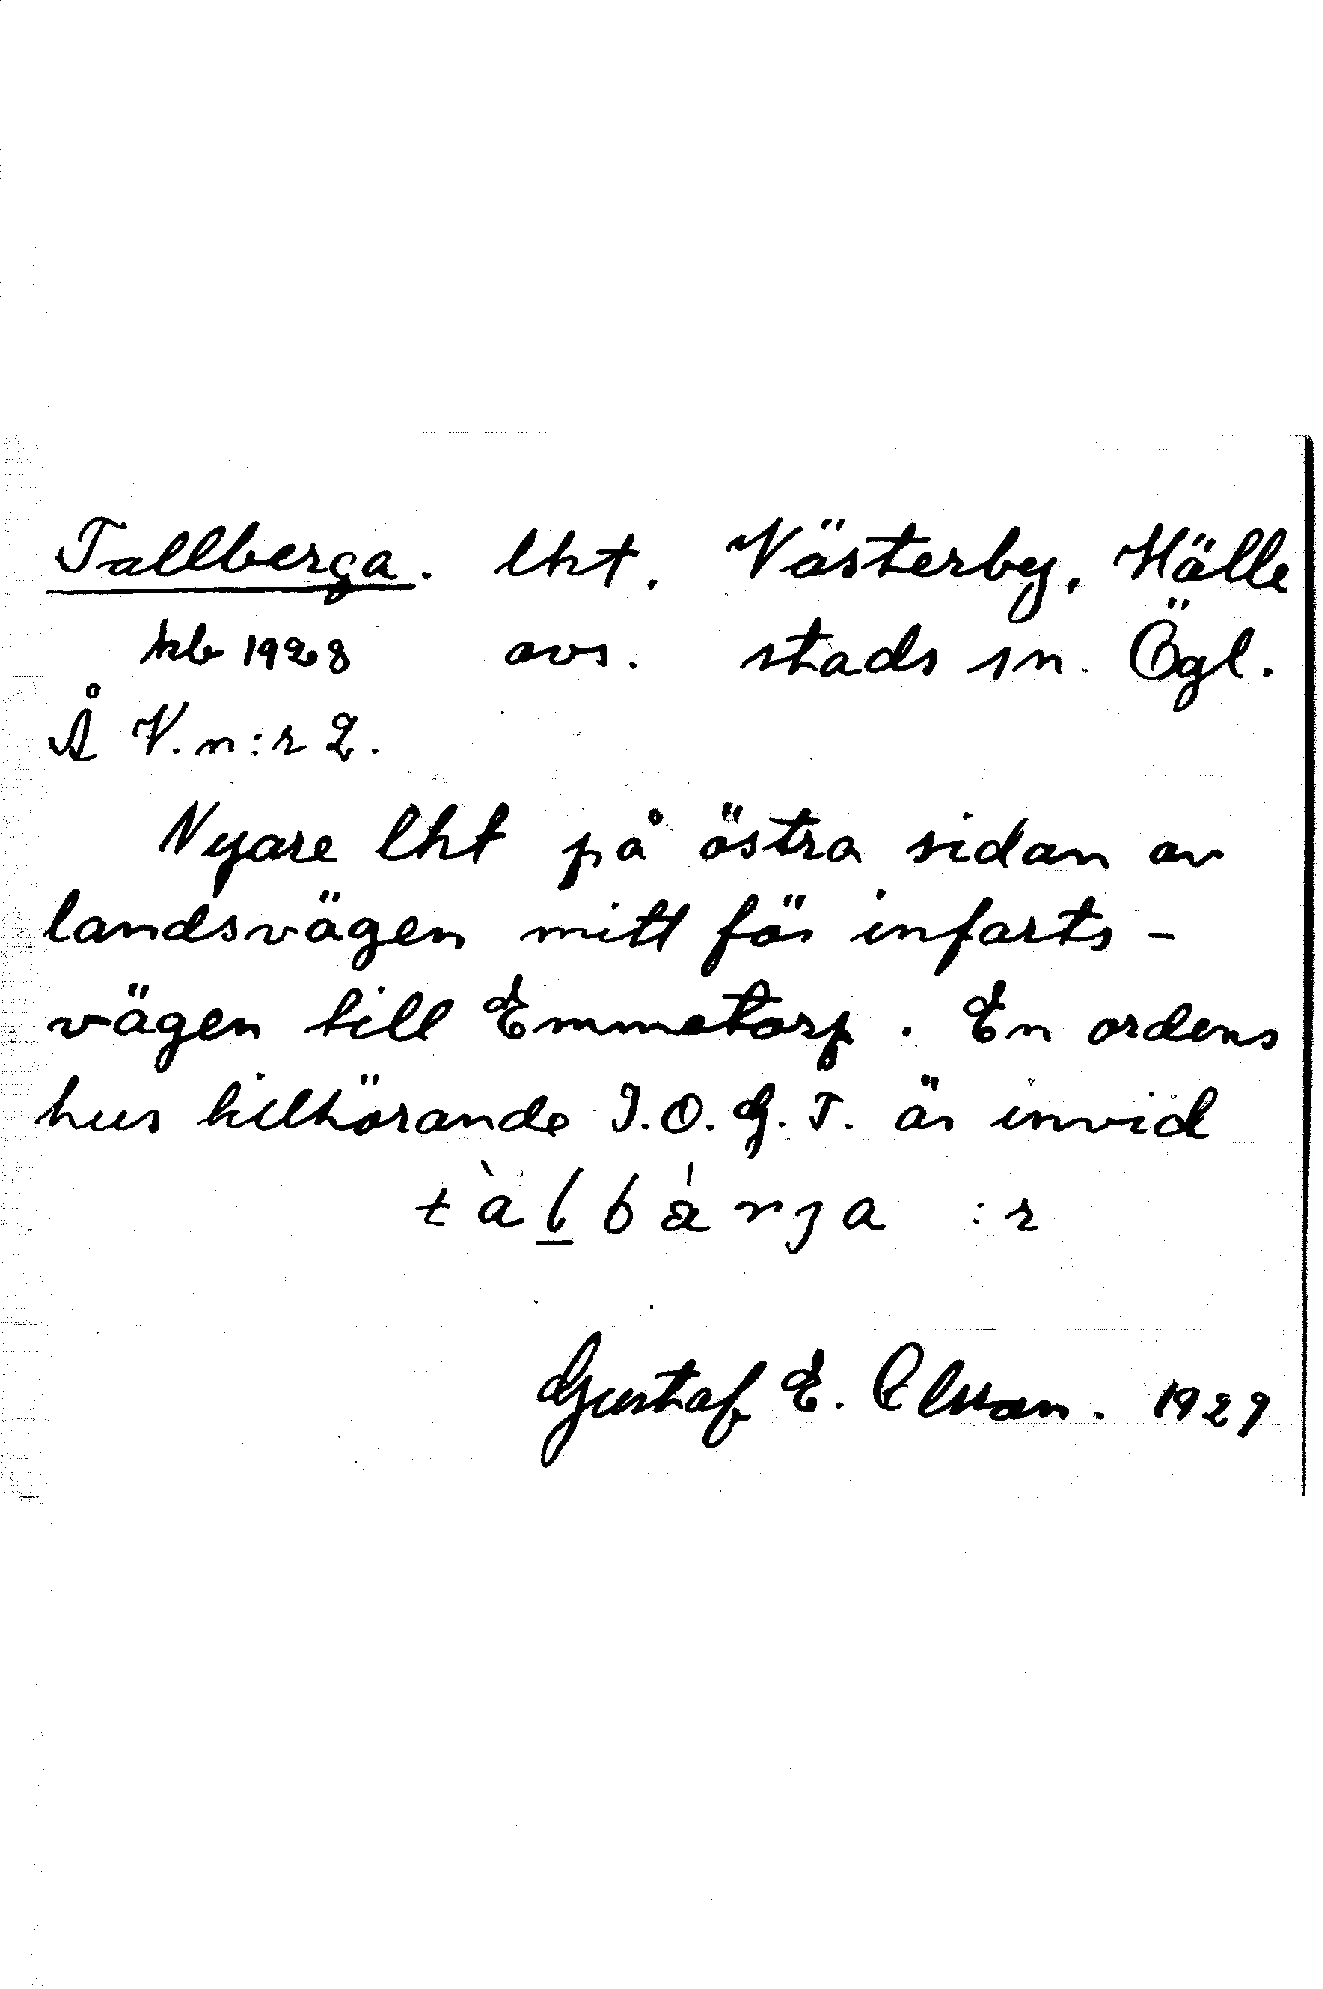 Tallberga. lht. Västerby, Hälle
kb 1928 avs. stads sn. Ögl.
Å V. n:r 2.
Nyare lht på östra sidan av
landsvägen mitt för infarts-
vägen till Emmetorp. En ordens
hus tillhörande I.O.G.T. är invid
tàlbárja :r
Gustaf E. Elvson. 1929